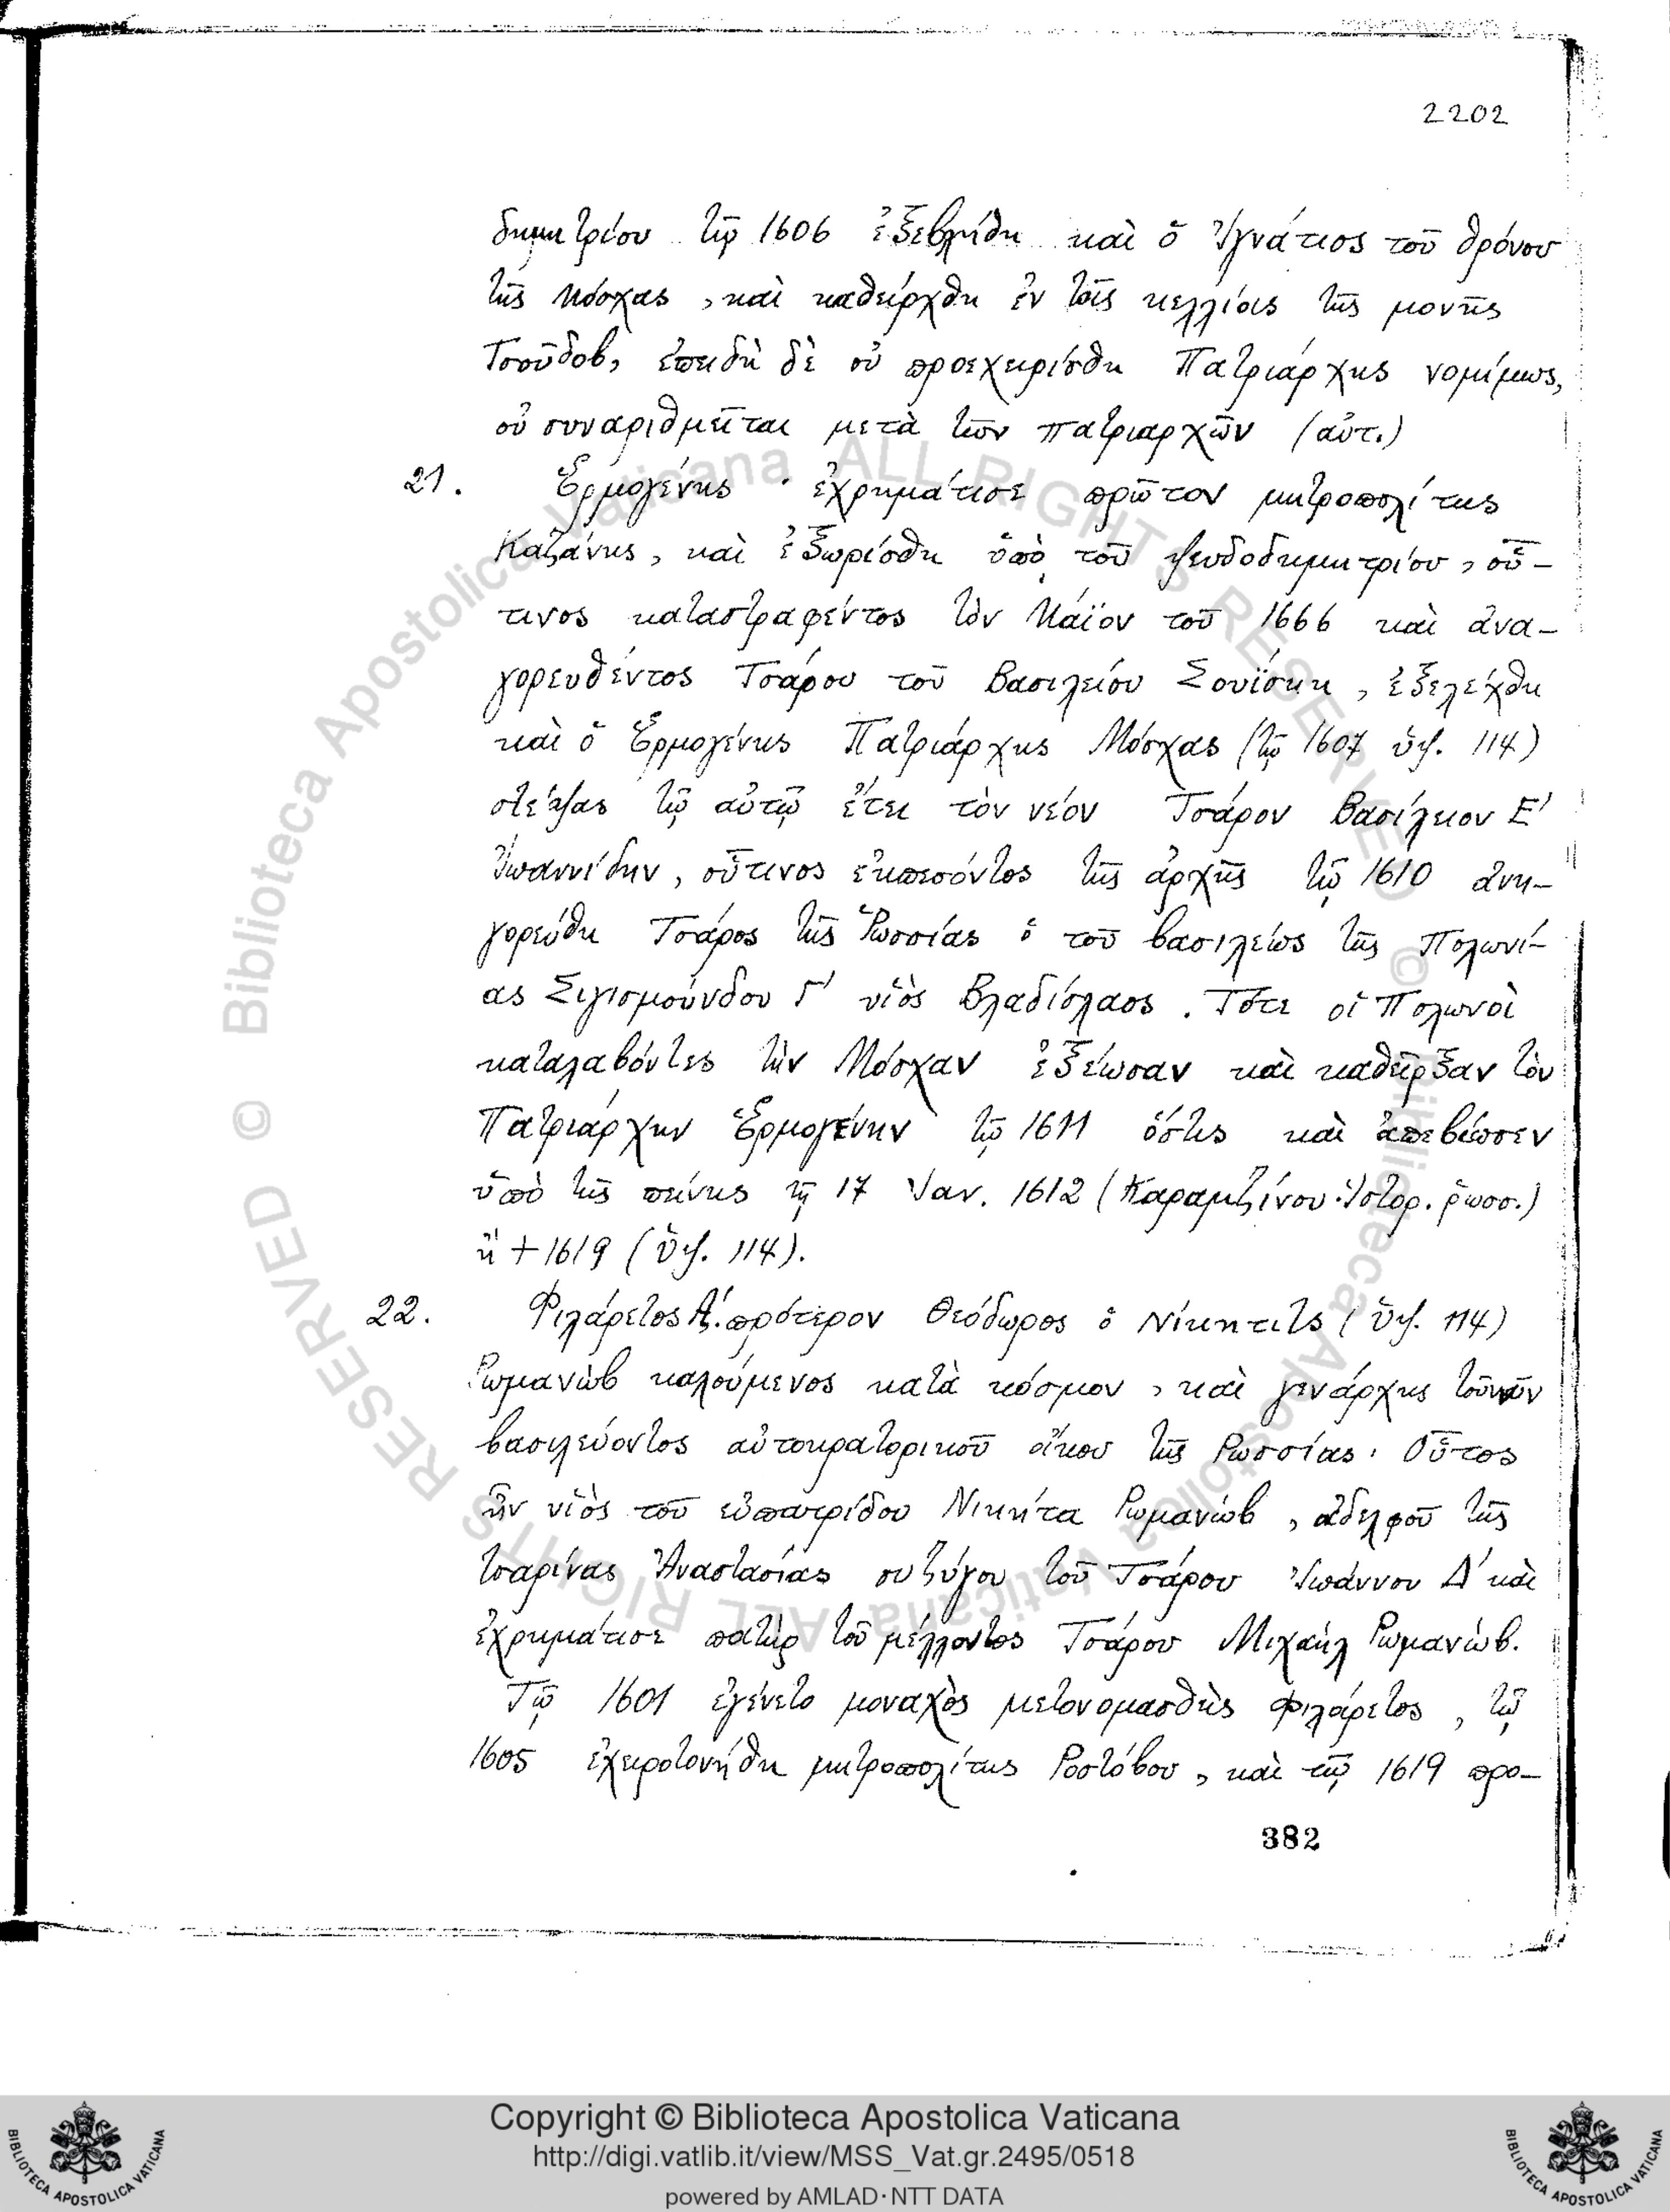 2202
δημητρίου τῷ 1606 ἐξεβλήθη καὶ ὁ Ἰγνάτιος τοῦ θρόνου
τῆς Μόσχας, καὶ καθείρχθη ἐν τοῖς κελλίοις τῆς μονῆς
Τσοῦδοβ, ἐπειδὴ δὲ οὐ προεχειρίσθη Πατριάρχης νομίμως,
οὐ συναριθμεῖται μετὰ τῶν πατριαρχῶν (αὐτ.)
21. Ἑρμογένης · ἐχρημάτισε πρῶτον μητροπολίτης
Καζάνης, καὶ ἐξωρίσθη ὑπὸ τοῦ ψευδοδημητρίου, οὗ-
τινος καταστραφέντος τὸν Μάϊον τοῦ 1666 καὶ ἀνα-
γορευθέντος Τσάρου τοῦ Βασιλείου Σουΐσκη, ἐξελέχθη
καὶ ὁ Ἑρμογένης Πατριάρχης Μόσχας (τῷ 1607 ὑψ. 114)
στέψας τῷ αὐτῷ ἔτει τὸν νέον Τσάρον Βασίλειον Ε'
Ἰωαννίδην, οὗτινος ἐκπεσόντος τῆς ἀρχῆς τῷ 1610 ἀνη-
γορεύθη Τσάρος τῆς Ῥωσσίας ὁ τοῦ βασιλέως τῆς Πολωνί-
ας Σιγισμούνδου Γ' υἱὸς Βλαδίσλαος. Τότε οἱ Πολωνοὶ
καταλαβόντες τὴν Μόσχαν ἐξέωσαν καὶ καθεῖρξαν τὸν
Πατριάρχην Ἑρμογένην τῷ 1611 ὅστις καὶ ἀπεβίωσεν
ὑπὸ τῆς πείνης τῇ 17 Ἰαν. 1612 (Καραμζίνου Ἱστορ. ῥωσσ.)
ἢ + 1619 (ὑψ. 114).
22. Φιλάρετος Α'. πρότερον Θεόδωρος ὁ Νίκητιτς (ὑψ. 114)
Ῥωμανὼβ καλούμενος κατὰ κόσμον, καὶ γενάρχης τοῦ νῦν
βασιλεύοντος αὐτοκρατορικοῦ οἴκου τῆς Ρωσσίας. Οὗτος
ἦν υἱὸς τοῦ εὐπατρίδου Νικήτα Ρωμανώβ, ἀδελφοῦ τῆς
τσαρίνας Ἀναστασίας συζύγου τοῦ Τσάρου Ἰωάννου Δ' καὶ
ἐχρημάτισε πατὴρ τοῦ μέλλοντος Τσάρου Μιχαὴλ Ρωμανώβ.
Τῷ 1601 ἐγένετο μοναχὸς μετονομασθεὶς Φιλάρετος, τῷ
1605 ἐχειροτονήθη μητροπολίτης Ροστόβου, καὶ τῷ 1619 προ-
382
© Biblioteca Apostolica Vaticana ALL RIGHTS RESERVED
© Biblioteca Apostolica Vaticana ALL RIGHTS RESERVED
Copyright © Biblioteca Apostolica Vaticana
http://digi.vatlib.it/view/MSS_Vat.gr.2495/0518
powered by AMLAD·NTT DATA
BIBLIOTECA APOSTOLICA VATICANA
BIBLIOTECA APOSTOLICA VATICANA